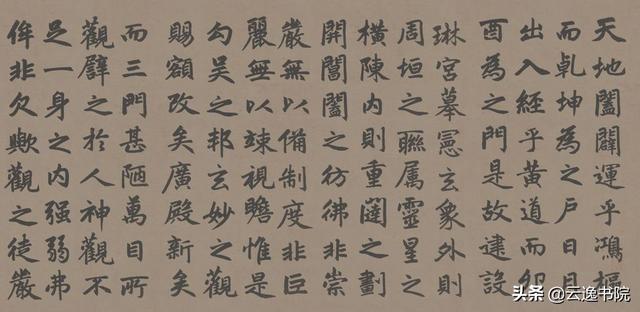 天地闔闢運乎鴻樞
而乹坤為之戶日月
出入經乎黃道而卯
酉為之門是故建設
琳宮摹憲玄象外則
周垣之聮属靈星之
橫陳内則重闥之劃
開閶闔之彷彿非崇
嚴無以備制度非巨
麗無以竦視瞻惟是
勾吴之邦玄妙之觀
賜額改矣廣殿新矣
而三門甚陋萬目所
觀譬之於人神觀不
足一身之内强弱弗
侔非欠歟觀之徒嚴
头条 @云逸书院